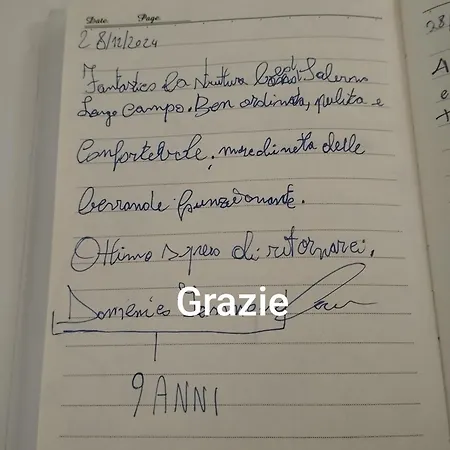 Date. Page.
28/12/2024
Fantastica la struttura Salerno
Largo Campo. Ben ordinata, pulita e
Confortevole, macchinetta delle
bevande funzionante.
Ottimo spero di ritornarci.
Domenico
Grazie
9 ANNI
28
A
e